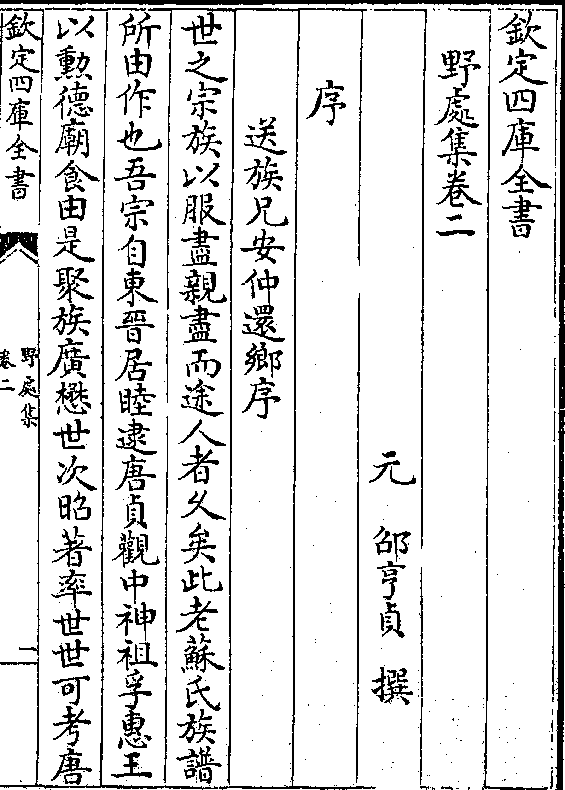 欽定四庫全書
野處集卷二
元　邵亨貞　撰
序
送族兄安仲還鄉序
世之宗族以服盡親盡而途人者久矣此老蘇氏族譜
所由作也吾宗自東晉居睦逮唐貞觀中神祖孚惠王
以勲德廟食由是聚族廣懋世次昭著率世世可考唐
欽定四庫全書
野處集
卷二
一